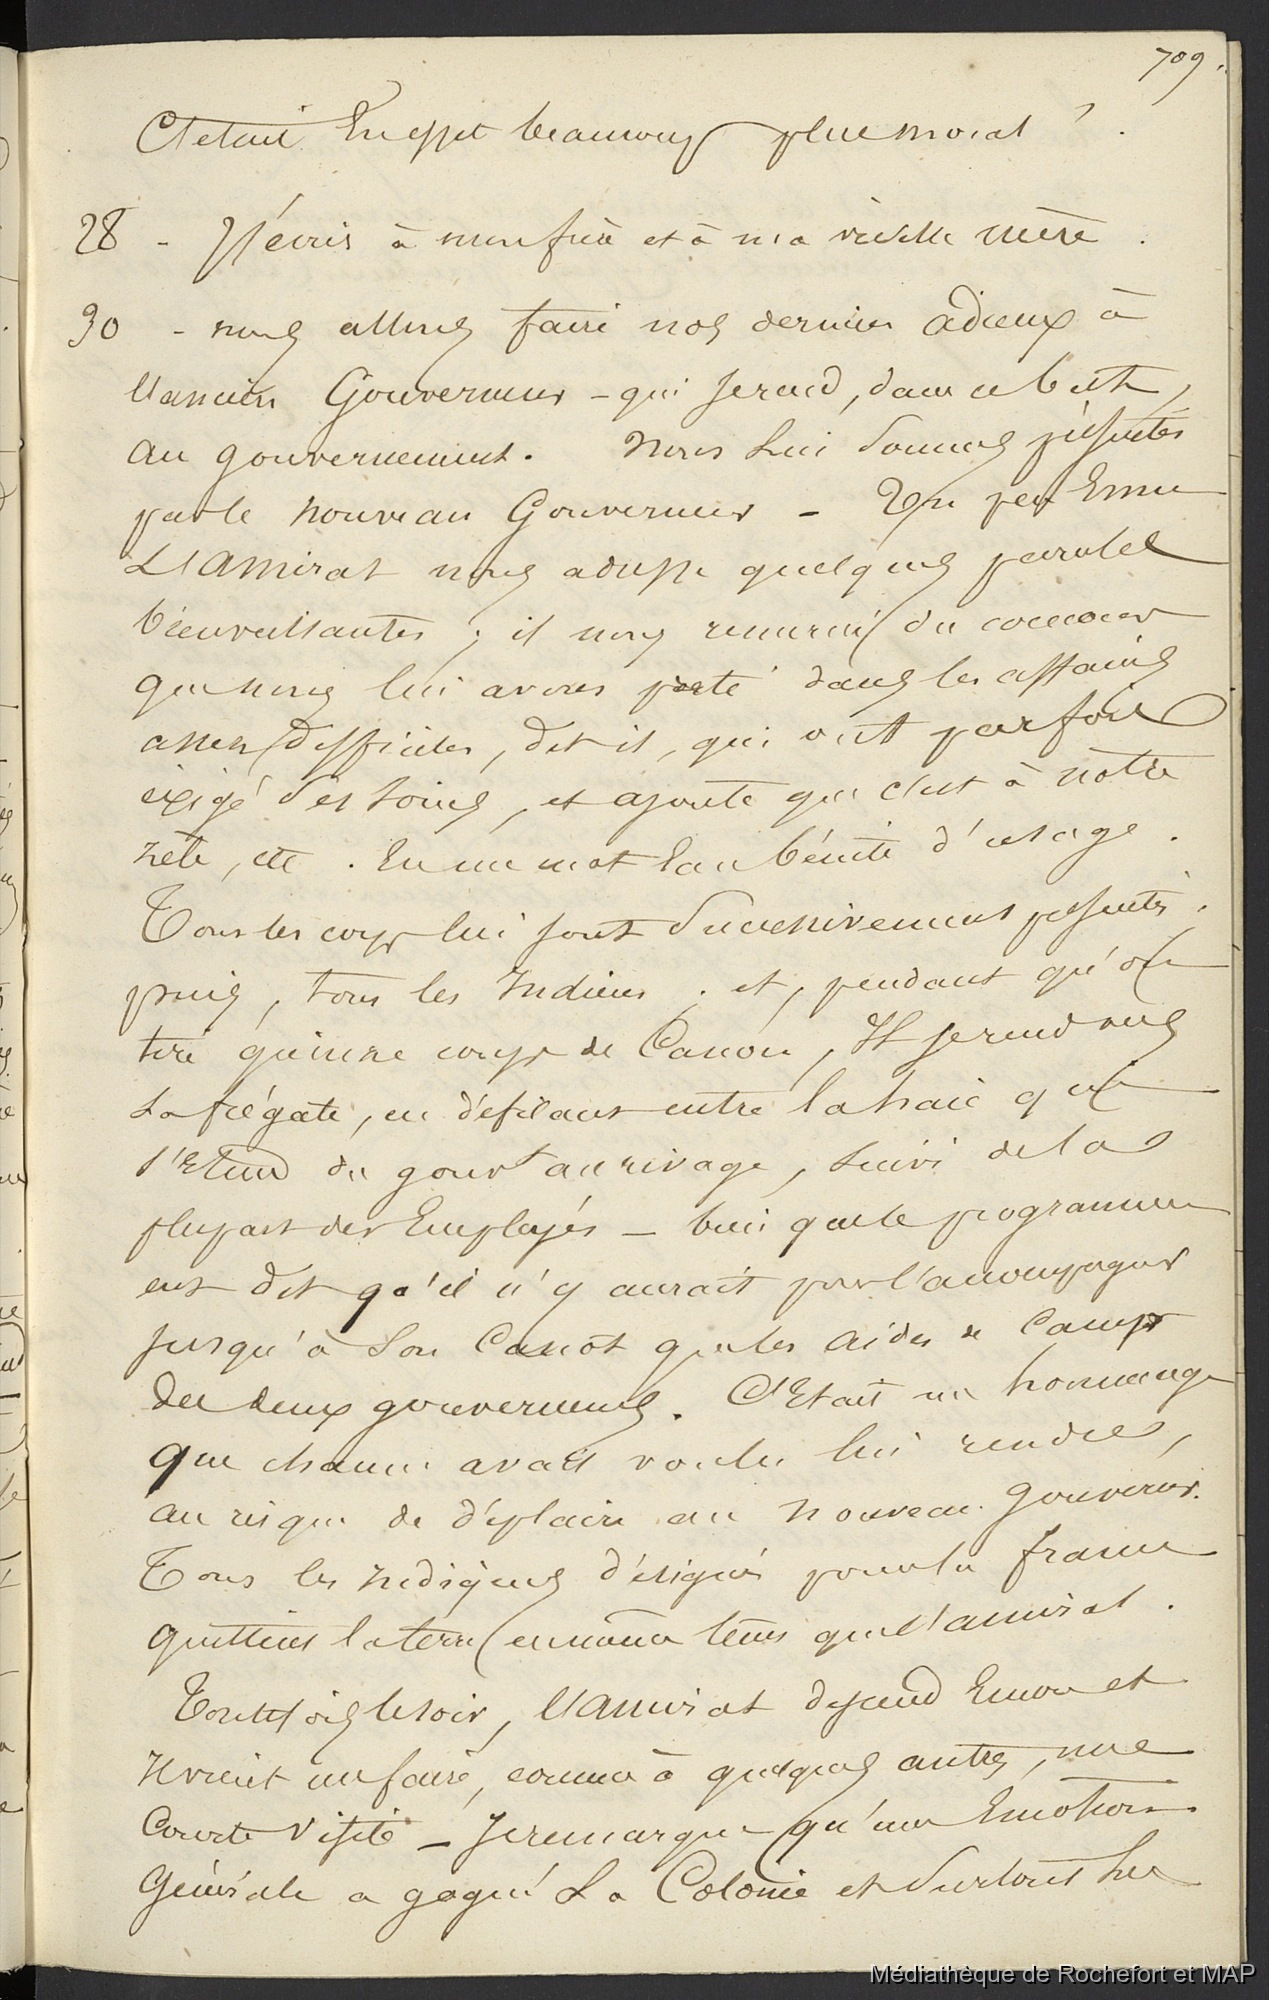 709.
C'était En effet beaucoup plus moral ! .
28 - J'écris à mon frère et à ma vieille mère .
30 - nous allons faire nos derniers adieux à
l'ancien Gouverneur - qui se rend, dans ce but,
au gouvernement. Nous lui sommes présentés
par le nouveau Gouverneur - Un peu Emu
L'Amiral nous adresse quelques paroles
bienveillantes ; il nous remercie du concours
que nous lui avons porté dans les affaires
assez difficiles, dit il, qui ont parfois
exigé des soins, et ajoute que c'est à notre
zèle, etc . En un mot l'eau bénite d'usage .
Tous les corps lui sont Successivement présentés,
puis, tous les Indiens ; et, pendant qu'on
tire quinze coups de Canon, Il se rend vers
La frégate, en défilant entre la haie qui
s'Etend du gouvt au rivage, suivi de la
plupart des Employés - bien que le programme
eut dit qu'il n'y aurait pour l'accompagner
jusqu'à Son Canot que les aides de Camp
des deux gouverneurs. C'Etait un hommage
que chacun avait voulu lui rendre,
au risque de déplaire au nouveau gouverneur.
Tous les indigènes désignés pour la france
quittent la terre en même tems que l'amiral .
Toutefois le soir, l'Amiral descend Encore et
il vient me faire, comme à quelques autres, une
Courte Visite - Je remarque qu'une Emotion
Générale a gagné La Colonie et Surtout les
Médiathèque de Rochefort et MAP